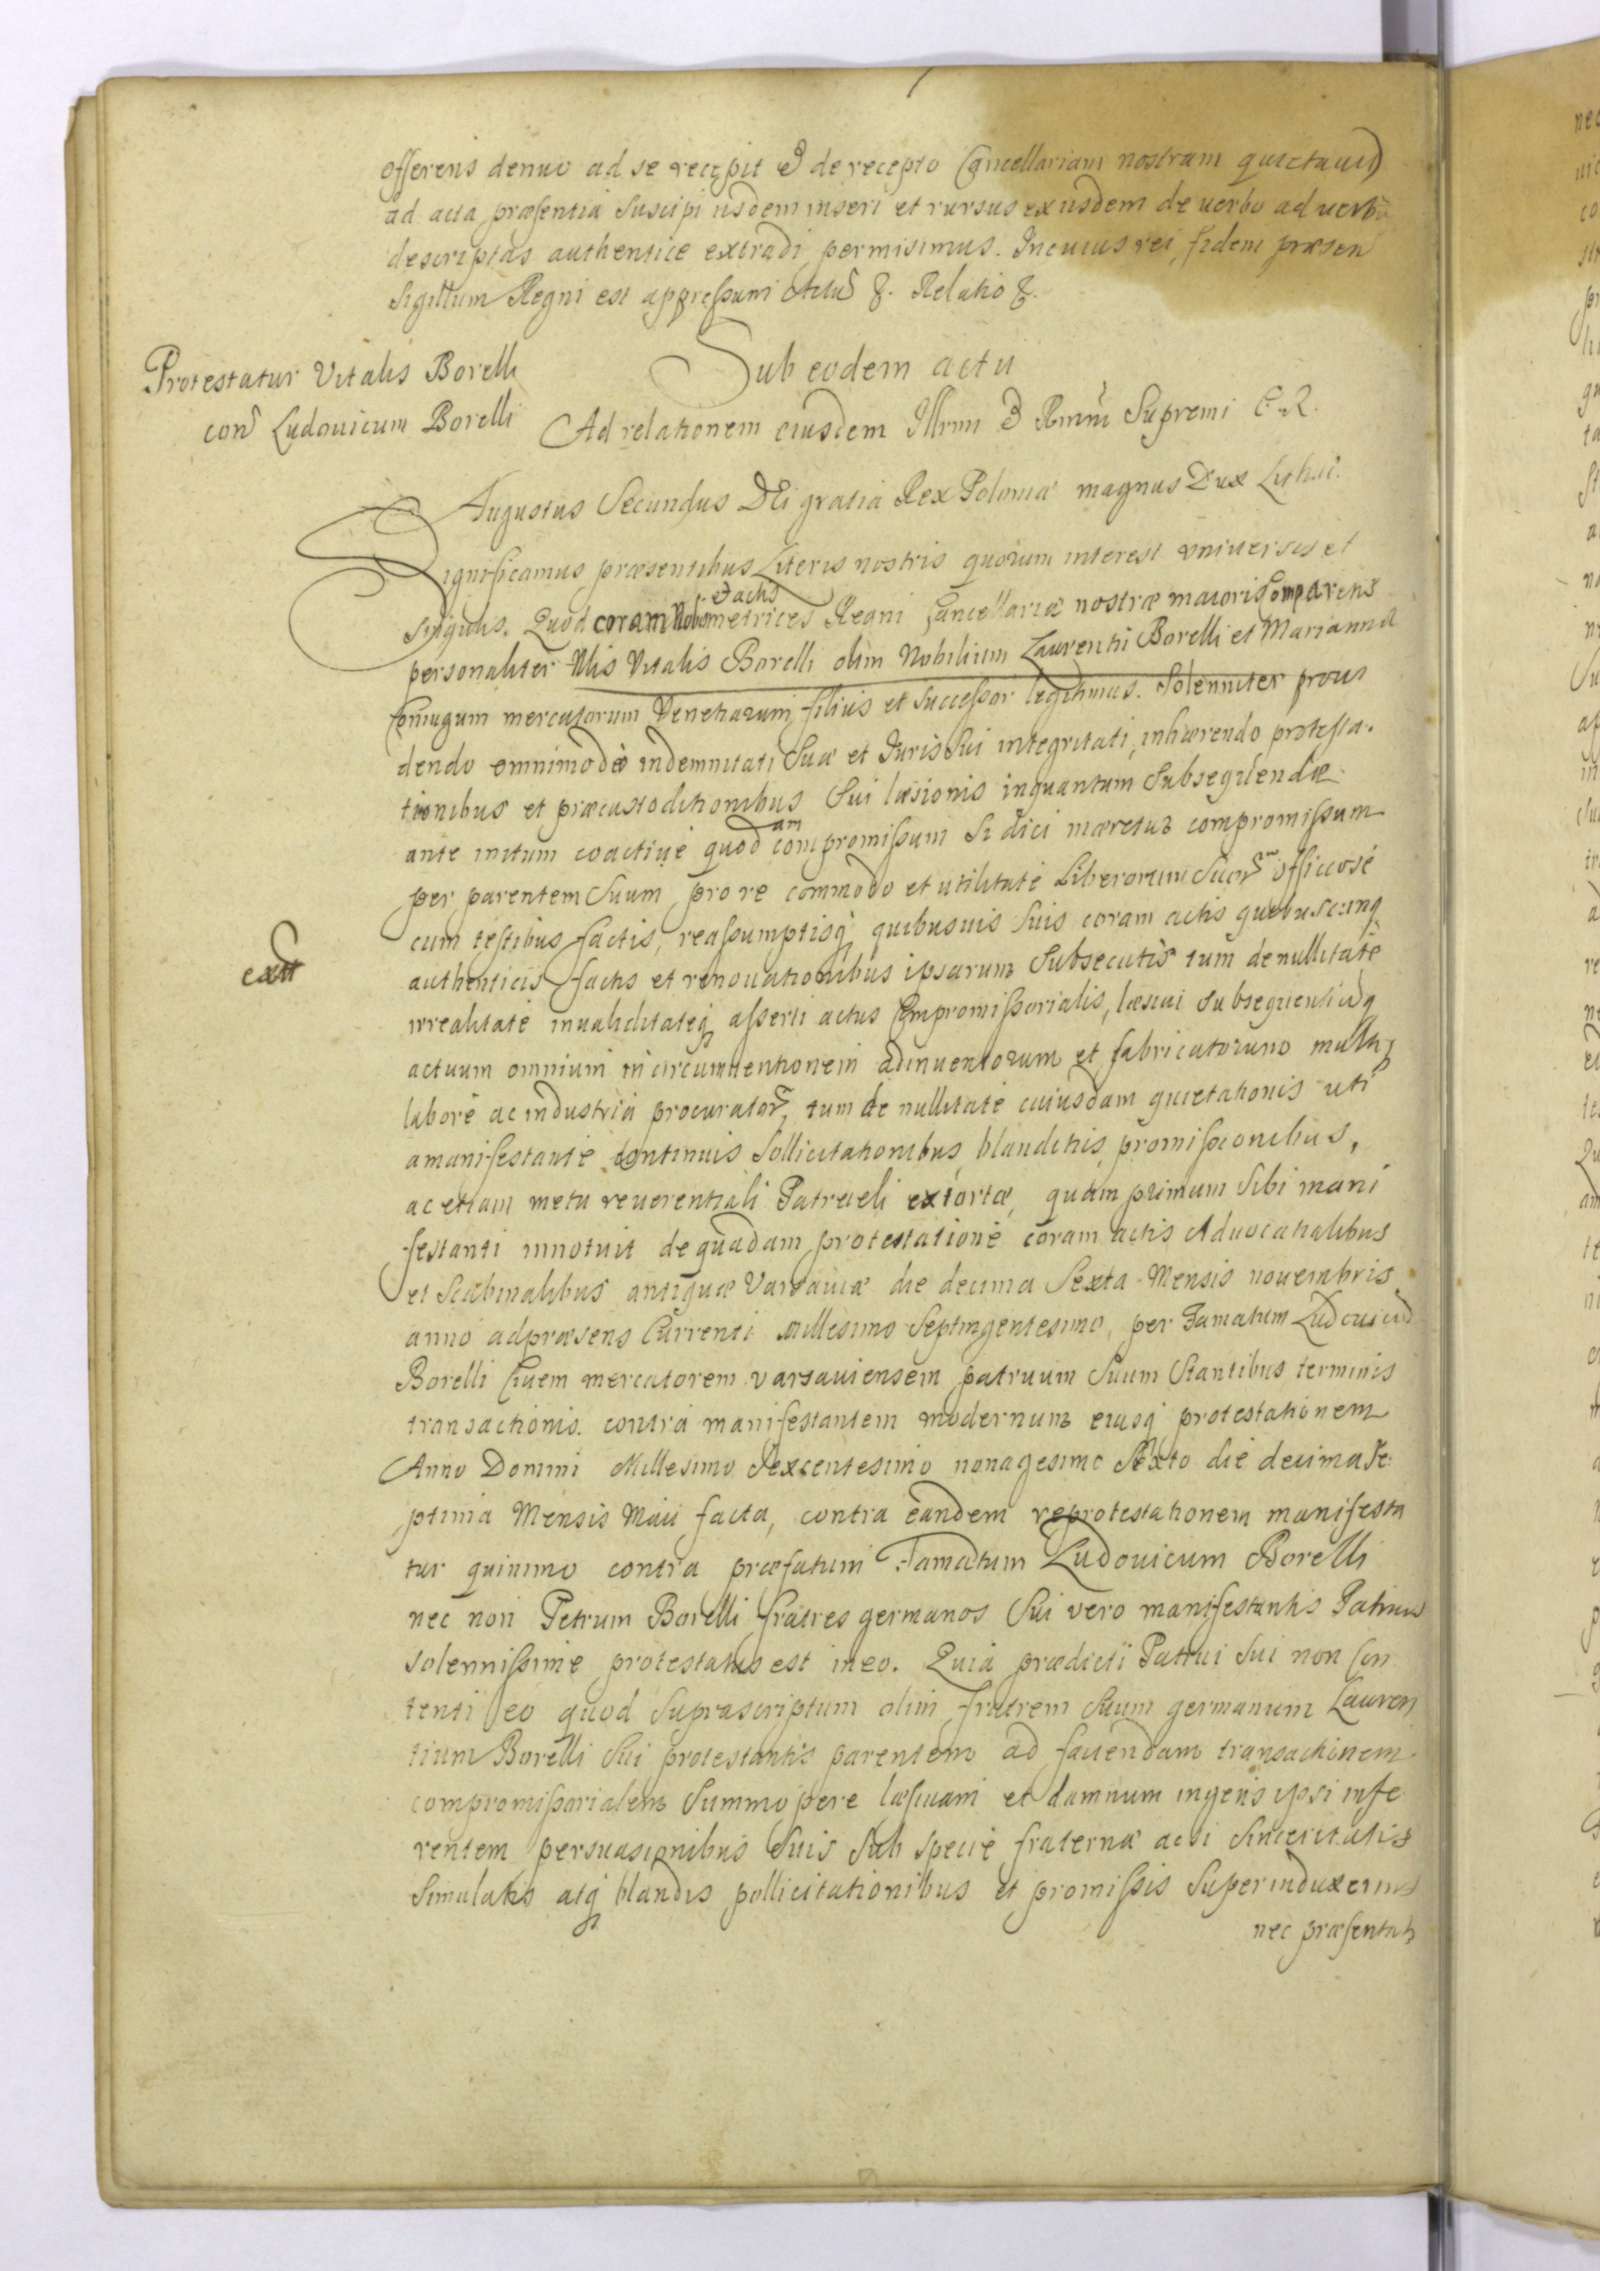 offerens denuo ad se recepit & de recepto Cancellariam nostram quietauit
ad acta præsentia suscipi iisdem inseri et rursus ex iisdem de uerbo ad uerbū
descriptas authentice extradi permisimus. In cuius rei fidem præsen
Sigillum Regni est appressum Actū &. Relatio &.
Protestatur Vitalis Borelli
con Ludouicum Borelli
Sub eodem actu
Ad relationem eiusdem Illrmi & Rmi Supremi C. R.
Augustus Secundus DEi gratia Rex Poloniæ magnus Dux Lithu.
Significamus præsentibus Literis nostris quorum interest vniuersis et
singulis. Quod coram Nobis & actis metrices Regni Cancellariæ nostræ maioris Comparens
personaliter Nlis Vitalis Borelli olim Nobilium Laurentii Borelli et Marianna
Coniugum mercatorum Venetiarum filius et successor legitimus. Solenniter proui
dendo omnimodè indemnitati Suæ et Iuris Sui integritati, inhærendo protesta.
tionibus et præcustoditionibus Sui læsionis inquantum Subsequendæ
ante initum coactiue quod am compromissum si dici mæretur compromissum
per parentem Suum pro re commodo et utilitate Liberorum Suor officiosé
cum testibus factis, reassumptisq quibusuis Suis coram actis quibuscunq
exit
authenticis factis et renouationibus ipsarum Subsecutis tum de nullitate
irrealitate inualiditateq asserti actus Compromissorialis, læsiui Subsequentiuq
actuum omnium in circumuentionem adinuentorum et fabricatorum multo
labore ac industria procurator, tum de nullitate cuiusdam quietationis uti
a manifestante continuis Sollicitationibus blanditiis, promissionibus,
ac etiam metu reuerentiali Patrueli extortæ, quam primum Sibi mani
festanti innotuit de quadam protestatione coram actis Aduocatialibus
et Scabinalibus antiquæ Varsauiæ die decima Sexta Mensis nouembris
anno adpræsens Currenti Millesimo Septingentesimo, per Famatum Ludouicū
Borelli Ciuem mercatorem varsauiensem patruum Suum Stantibus terminis
transactionis. contra manifestantem modernum eiusq protestationem
Anno Domini Millesimo Sexcentesimo nonagesimo Sexto die decima Se
ptima Mensis Maii facta, contra eandem reprotestationem manifesta
tur quinimo contra præfatum Famatum Ludouicum Borelli
nec non Petrum Borelli fratres germanos Sui vero manifestantis Patruos
solennissime protestatus est in eo. Quia prædicti Patrui Sui non Con
tenti eo quod Suprascriptum olim fratrem Suum germanum Lauren
tium Borelli Sui protestantis parentem ad faciendam transactionem
compromissorialem Summopere læsiuam et damnum ingens ipsi infe
rentem persuasionibus Suis Sub specie fraternæ acsi Sinceritatis
Simulatis atq blandis pollicitationibus et promissis Superinduxerint
nec præsentati